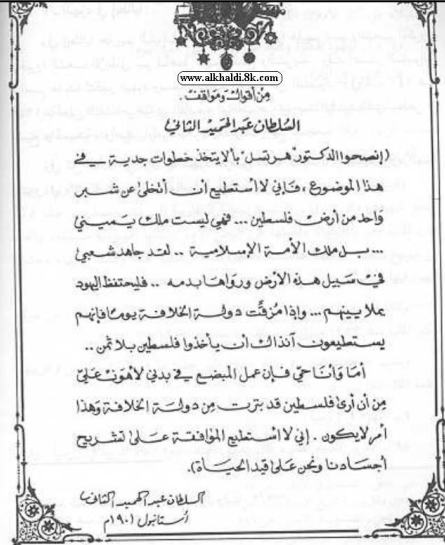 www.alkhaldi.8k.com
من أقوال ومواقف
السلطان عبد الحميد الثاني
(إنصحوا الدكتور هرتسل بألا يتخذ خطوات جدية في
هذا الموضوع، فإني لا أستطيع أن أتخلى عن شبر
واحد من أرض فلسطين.. فهي ليست ملك يميني
... بل ملك الأمة الإسلامية .. لقد جاهد شعبي
في سبيل هذه الأرض ورواها بدمه .. فليحتفظ اليهود
بملايينهم ... وإذا مزقت دولة الخلافة يومًا فإنهم
يستطيعون آنذاك أن يأخذوا فلسطين بلا ثمن..
أما وأنا حيّ فإن عمل المبضع في بدني لأهون عليّ
من أن أرى فلسطين قد بترت من دولة الخلافة وهذا
أمر لا يكون. إني لا أستطيع الموافقة على تشريح
أجسادنا ونحن على قيد الحياة).
السلطان عبد الحميد الثاني
أستانبول ١٩٠١م